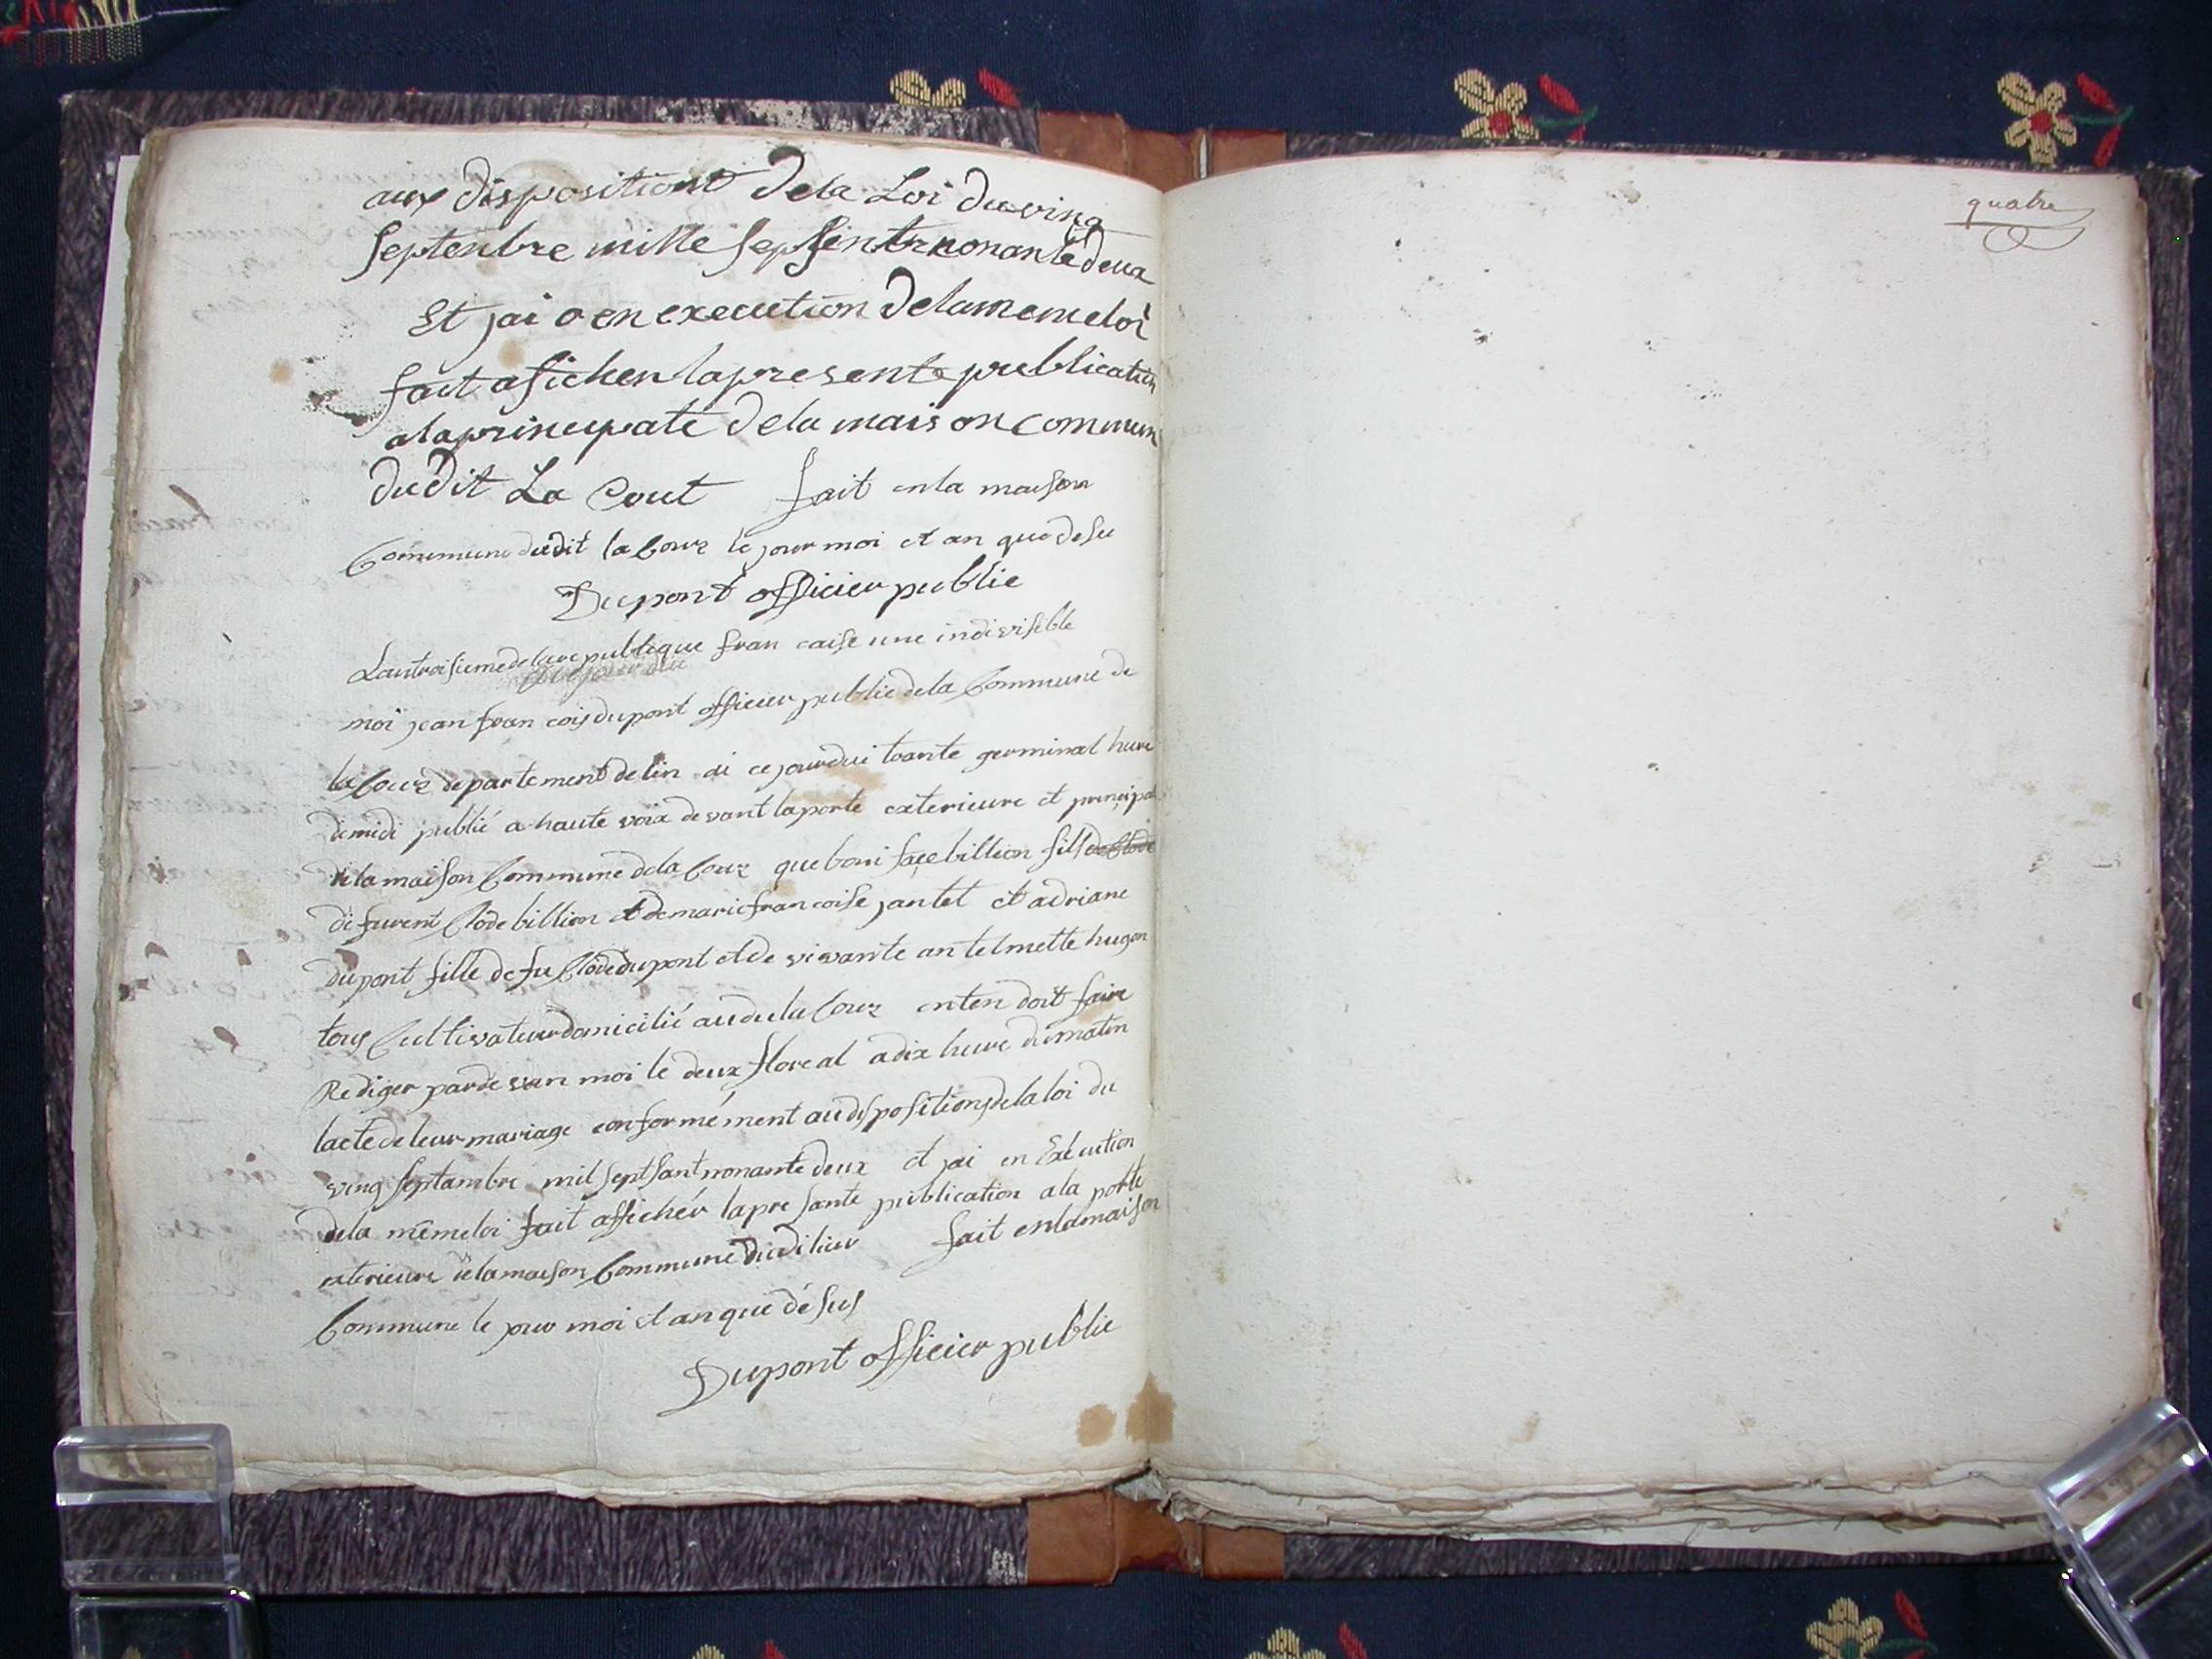 aux dispositions dela Loi du ving
septenbre mille sept sent nonante deux
Et jai o en execution delamemeloi
fait aficher lapresente publication
alaprincipate dela maison commun
dudit La Cout fait enla maison
Commune dudit la Cour le jour moi et an que desu
Dupont officier public
Lantroisieme delarepublique fran caise une indivisible
moi jean fran cois dupont officier public dela Commune de
la Cour departement delin ai cejourdui trante germinal hure
demidi publié a haute voix devant laporte exterieure et principal
de lamaison Commune dela Cour que boni face billion fils de Clode
de furent Clode billion et demariefrancoise jantet et adriane
dupont fille defu Clode dupont et de vivante antelmette hugon
tous Cultivateur domicilié audu la Cour enten doit faire
Rediger pardevan moi le deux floreal adix heure dumatin
lacte deleur mariage conformément audispositions dela loi du
ving septambre mil sept sant nonante deux et jai en Execution
dela mêmeloi fait affichér lapre sante publication ala porte
exterieure delamaison Commune dudilieu fait enlamaison
Commune le jour moi et an que désus
Dupont officier public
quatre